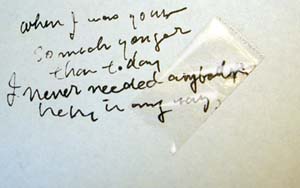 when I was your
so much younger
than today
I never needed anybody's
help in any way